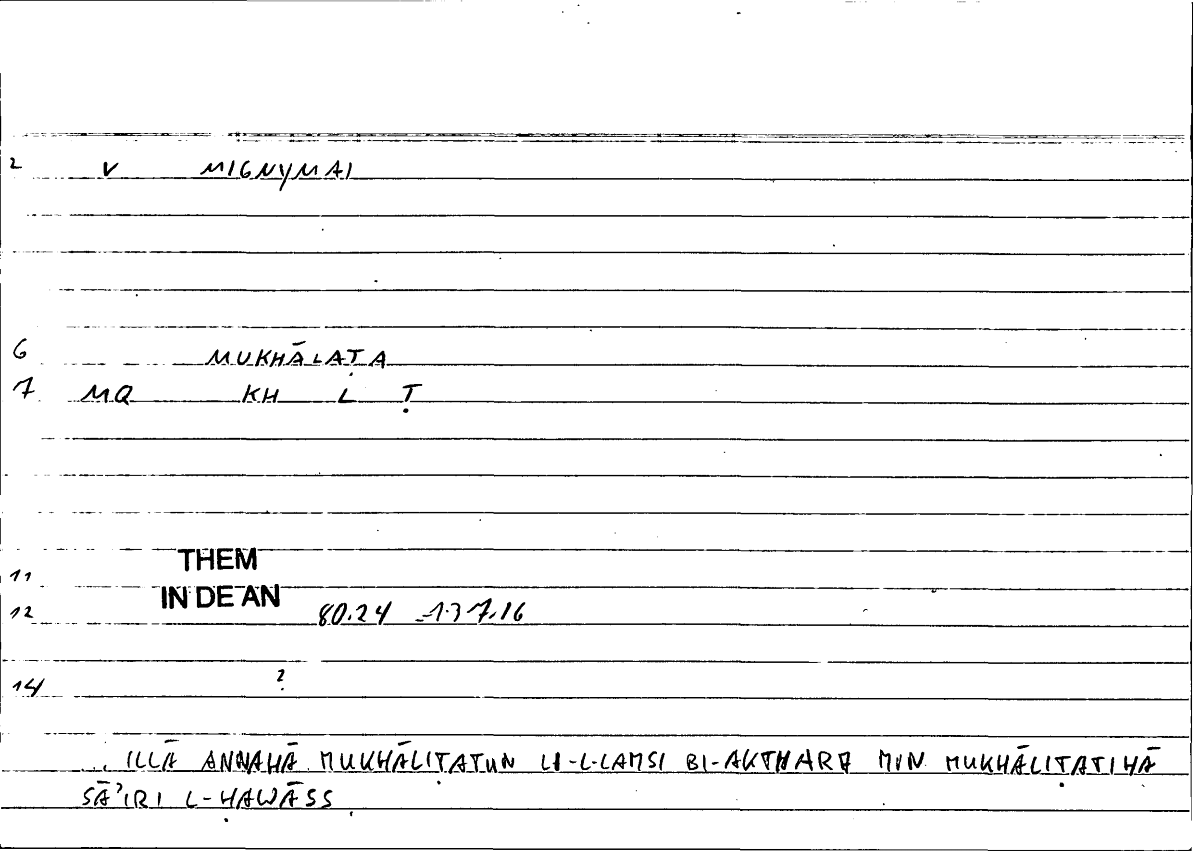 2 V MIGNYMAI
6 MUKHĀLAṬA
7 MQ KH L Ṭ
THEM
11
IN DE AN
12 80.24 -137.16
14 ?
.. ILLĀ ANNAHĀ MUKHĀLIṬATUN LI-L-LAMSI BI-AKTHARA MIN MUKHĀLIṬATIHĀ
SĀʾIRI L-ḤAWĀSS.